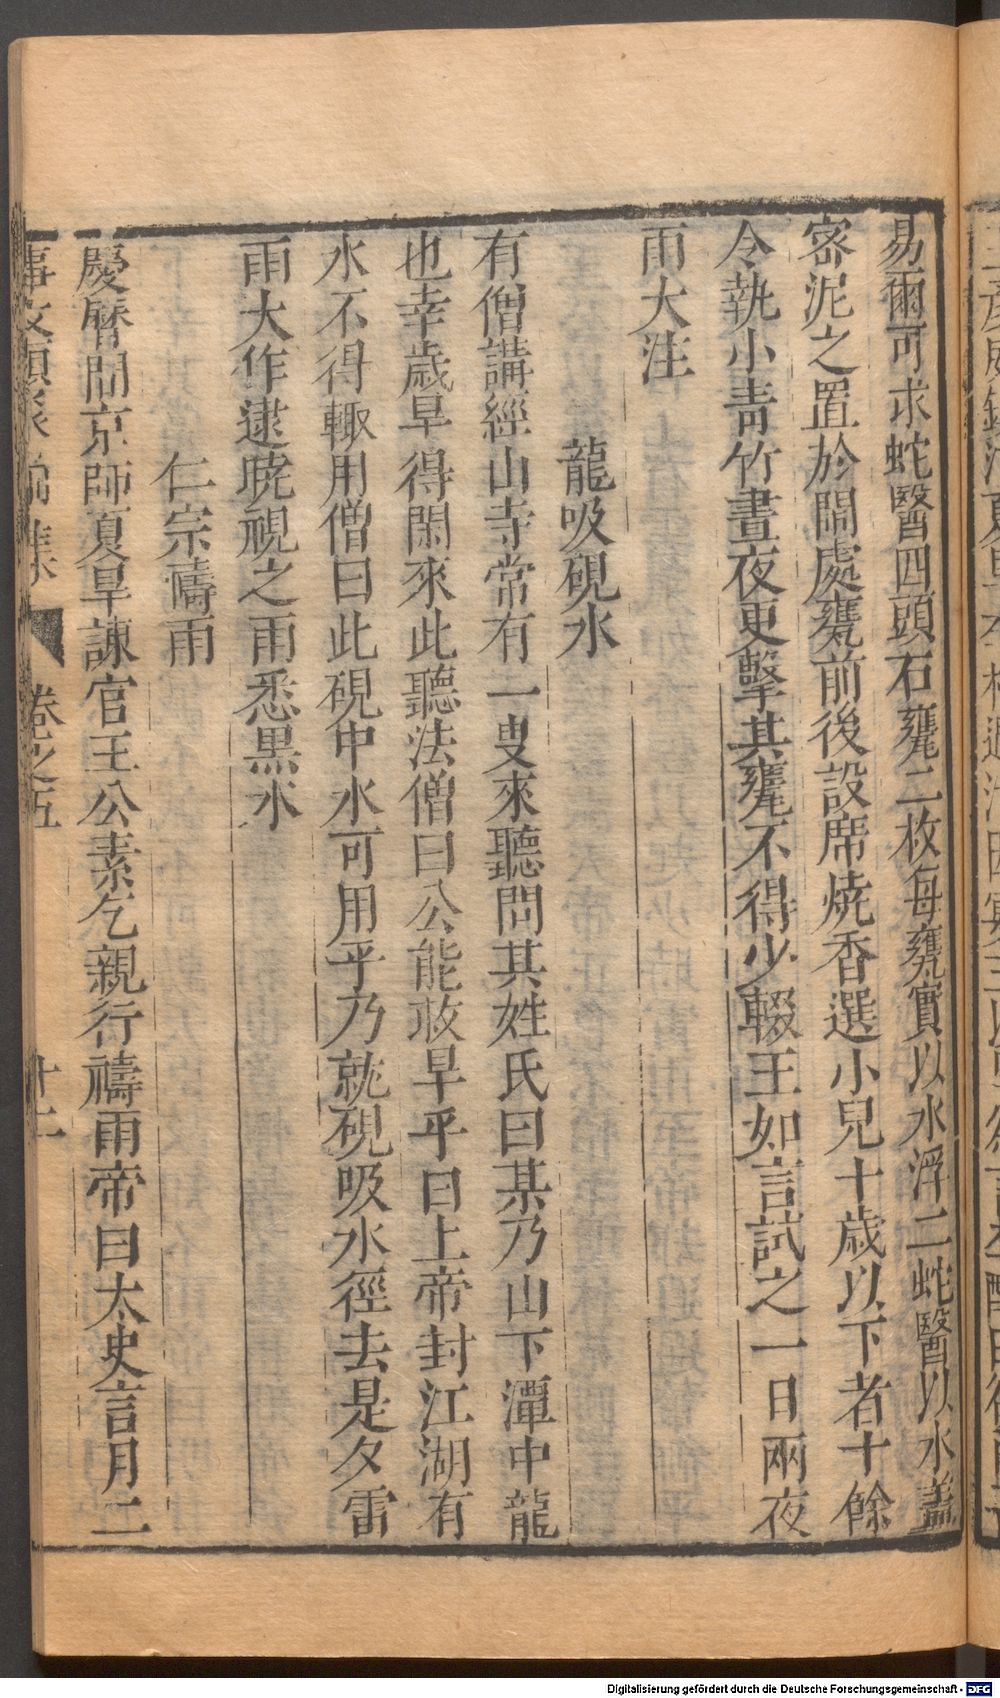 易爾可求蛇醫四頭石甕二枚每甕實以水浮二蛇醫以水蓋
密泥之置於閙處甕前後設席燒香選小兒十歲以下者十餘
令執小青竹晝夜更擊其甕不得少輟王如言試之一日兩夜
雨大注
龍吸硯水
有僧講經山寺常有一叟來聽問其姓氏曰某乃山下潭中龍
也幸歲旱得閑來此聽法僧曰公能救旱乎曰上帝封江湖有
水不得輙用僧曰此硯中水可用乎乃就硯吸水徑去是夕雷
雨大作逮曉視之雨悉黑水
仁宗禱雨
慶曆間京師夏旱諫官王公素乞親行禱雨帝曰太史言月二
事文類聚前集 卷之五 十一
Digitalisierung gefördert durch die Deutsche Forschungsgemeinschaft - DFG